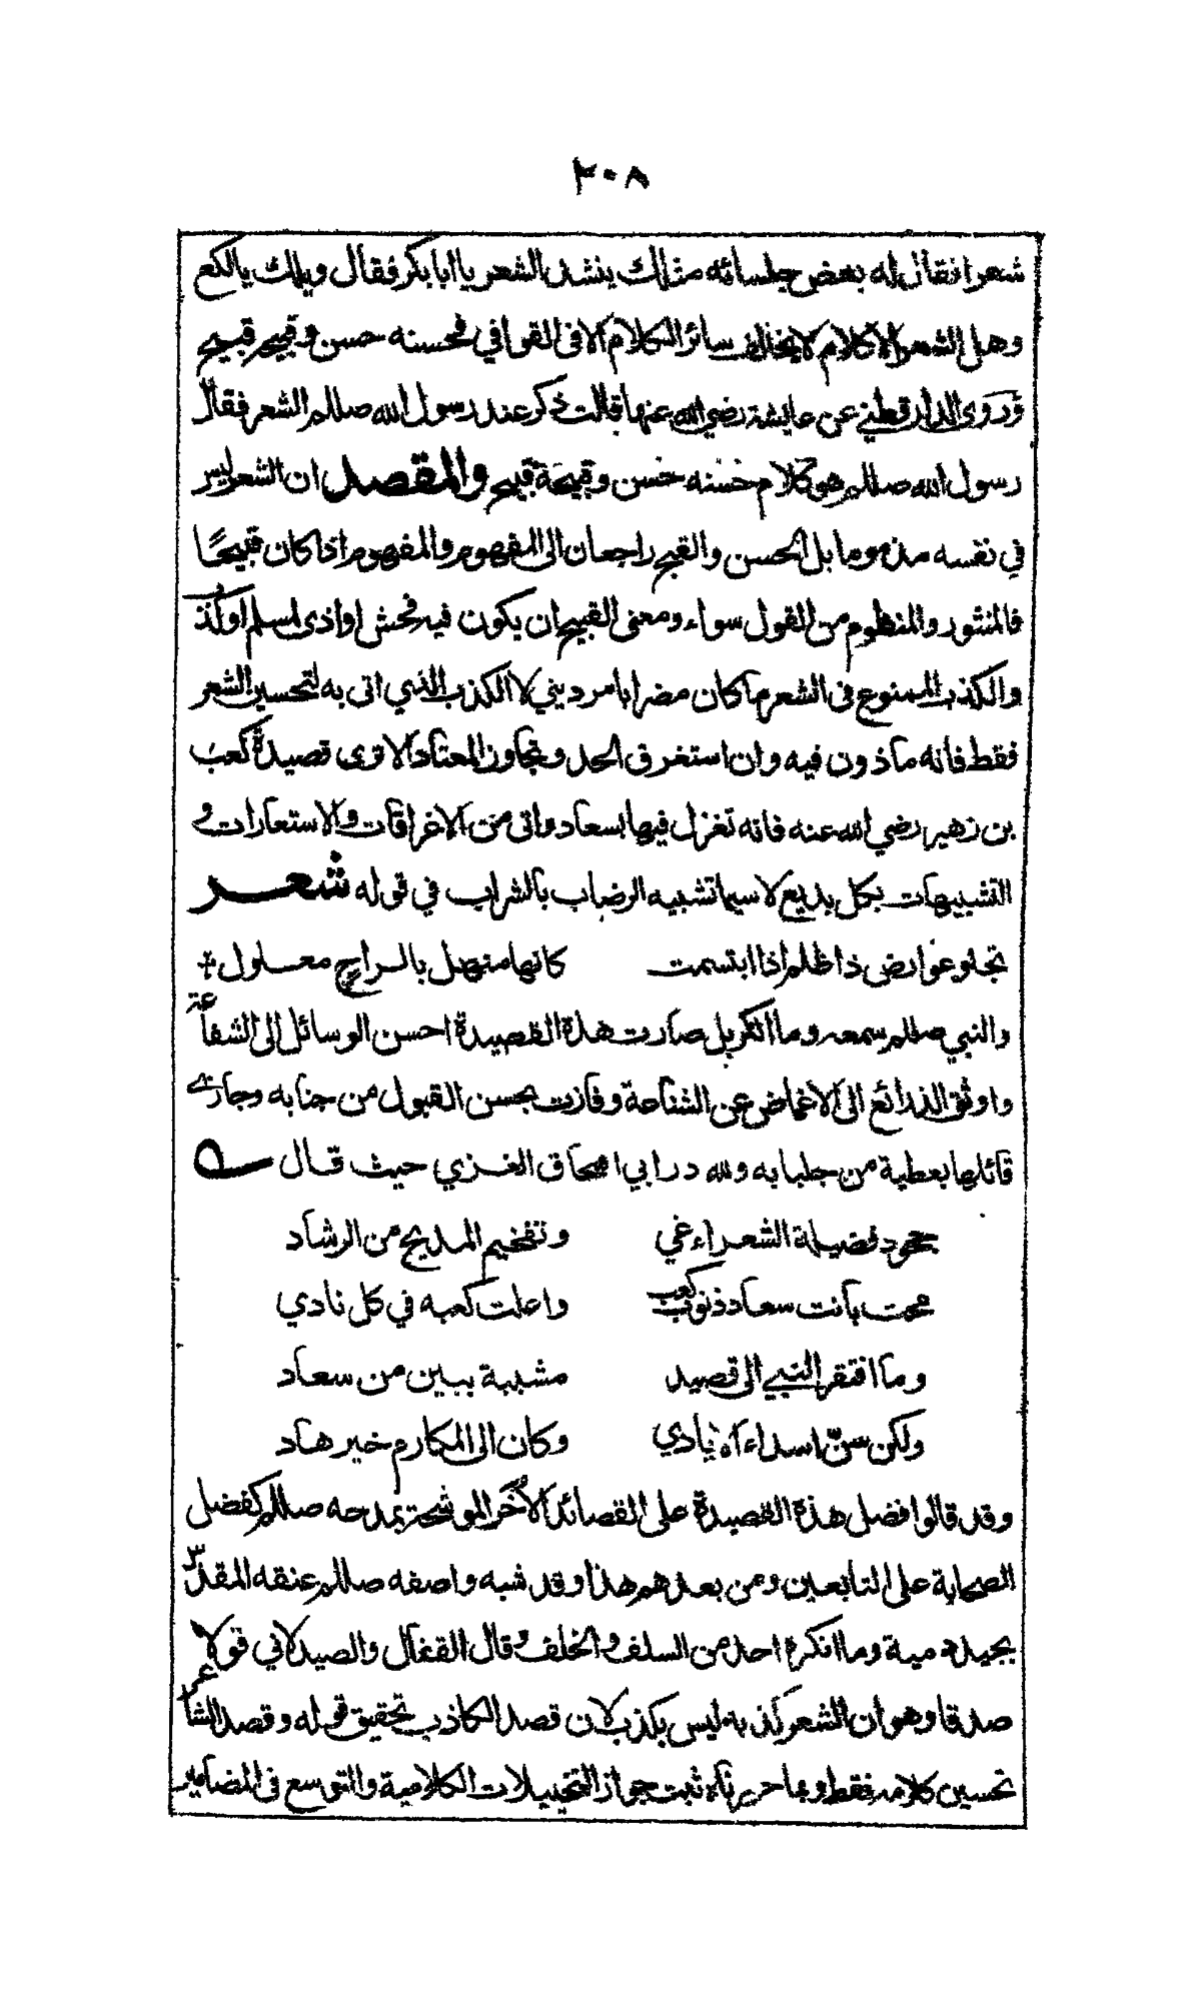 ٢٠٨
شعرا فقال له بعض جلسائه مثلك ينشد الشعر يا ابا بكر فقال ويلك يا لكع
وهل الشعر الا كلام لا يخالف سائر الكلام الا فى القوافي فحسنه حسن وقبيحه قبيح
وروى الدار قطني عن عايشة رضي الله عنها قالت ذكر عند رسول الله صللم الشعر فقال
رسول الله صللم هو كلام حسنه حسن وقبيحه قبيح والمقصل ان الشعر ليس
في نفسه مذموما بل الحسن والقبح راجعان الى المفهوم والمفهوم اذا كان قبيحًا
فالمنثور والمنظوم من القول سواء ومعنى القبيح ان يكون فيه فحش او اذى لمسلم او كذب
والكذب الممنوع فى الشعر ما كان مضرا بامر ديني لا الكذب الذي اتى به لتحسين الشعر
فقط فانه ماذون فيه وان استغرق الحد وتجاوز المعتاد الا ترى قصيدة كعب
بن زهير رضي الله عنه فانه تغزل فيها بسعاد واتى من الاغراقات والاستعارات و
التشبيهات بكل بديع لا سيما تشبيه الرضاب بالشراب في قوله شعر
تجلو عوارض ذا ظلم اذا ابتسمت كانها منهل بالراح معلول
والنبي صللم سمعه وما انكر بل صارت هذه القصيدة احسن الوسائل الى الشفاعة
واوثق الذرائع الى الاغماض عن الشناعة وفازت بحسن القبول من جنابه وجازے
قائلها بعطية من جلبابه ولله در ابي اسحاق الغزي حيث قال
جحود فضيلة الشعراء غي وتفخيم المديح من الرشاد
محت بانت سعاد ذنوب كعب واعلت كعبه في كل نادي
وما افتقر النبي الى قصيد مشببة ببين من سعاد
ولكن سنّ اسداء الايادي وكان الى المكارم خير هاد
وقد قالوا فضل هذه القصيدة على القصائد الاُخَر الموشحة بمدحه صللم كفضل
الصحابة على التابعين ومن بعدهم هذا وقد شبه واصفه صللم عنقه المقدس
بجيد دمية وما انكره احد من السلف والخلف وقال القفال والصيدلاني قولا
صدقا وهو ان الشعر كذبه ليس بكذب لان قصد الكاذب تحقيق قوله وقصد الشاعر
تحسين كلامه فقط وبما حررناه ثبت جواز التخييلات الكلامية والتوسع فى المضامير